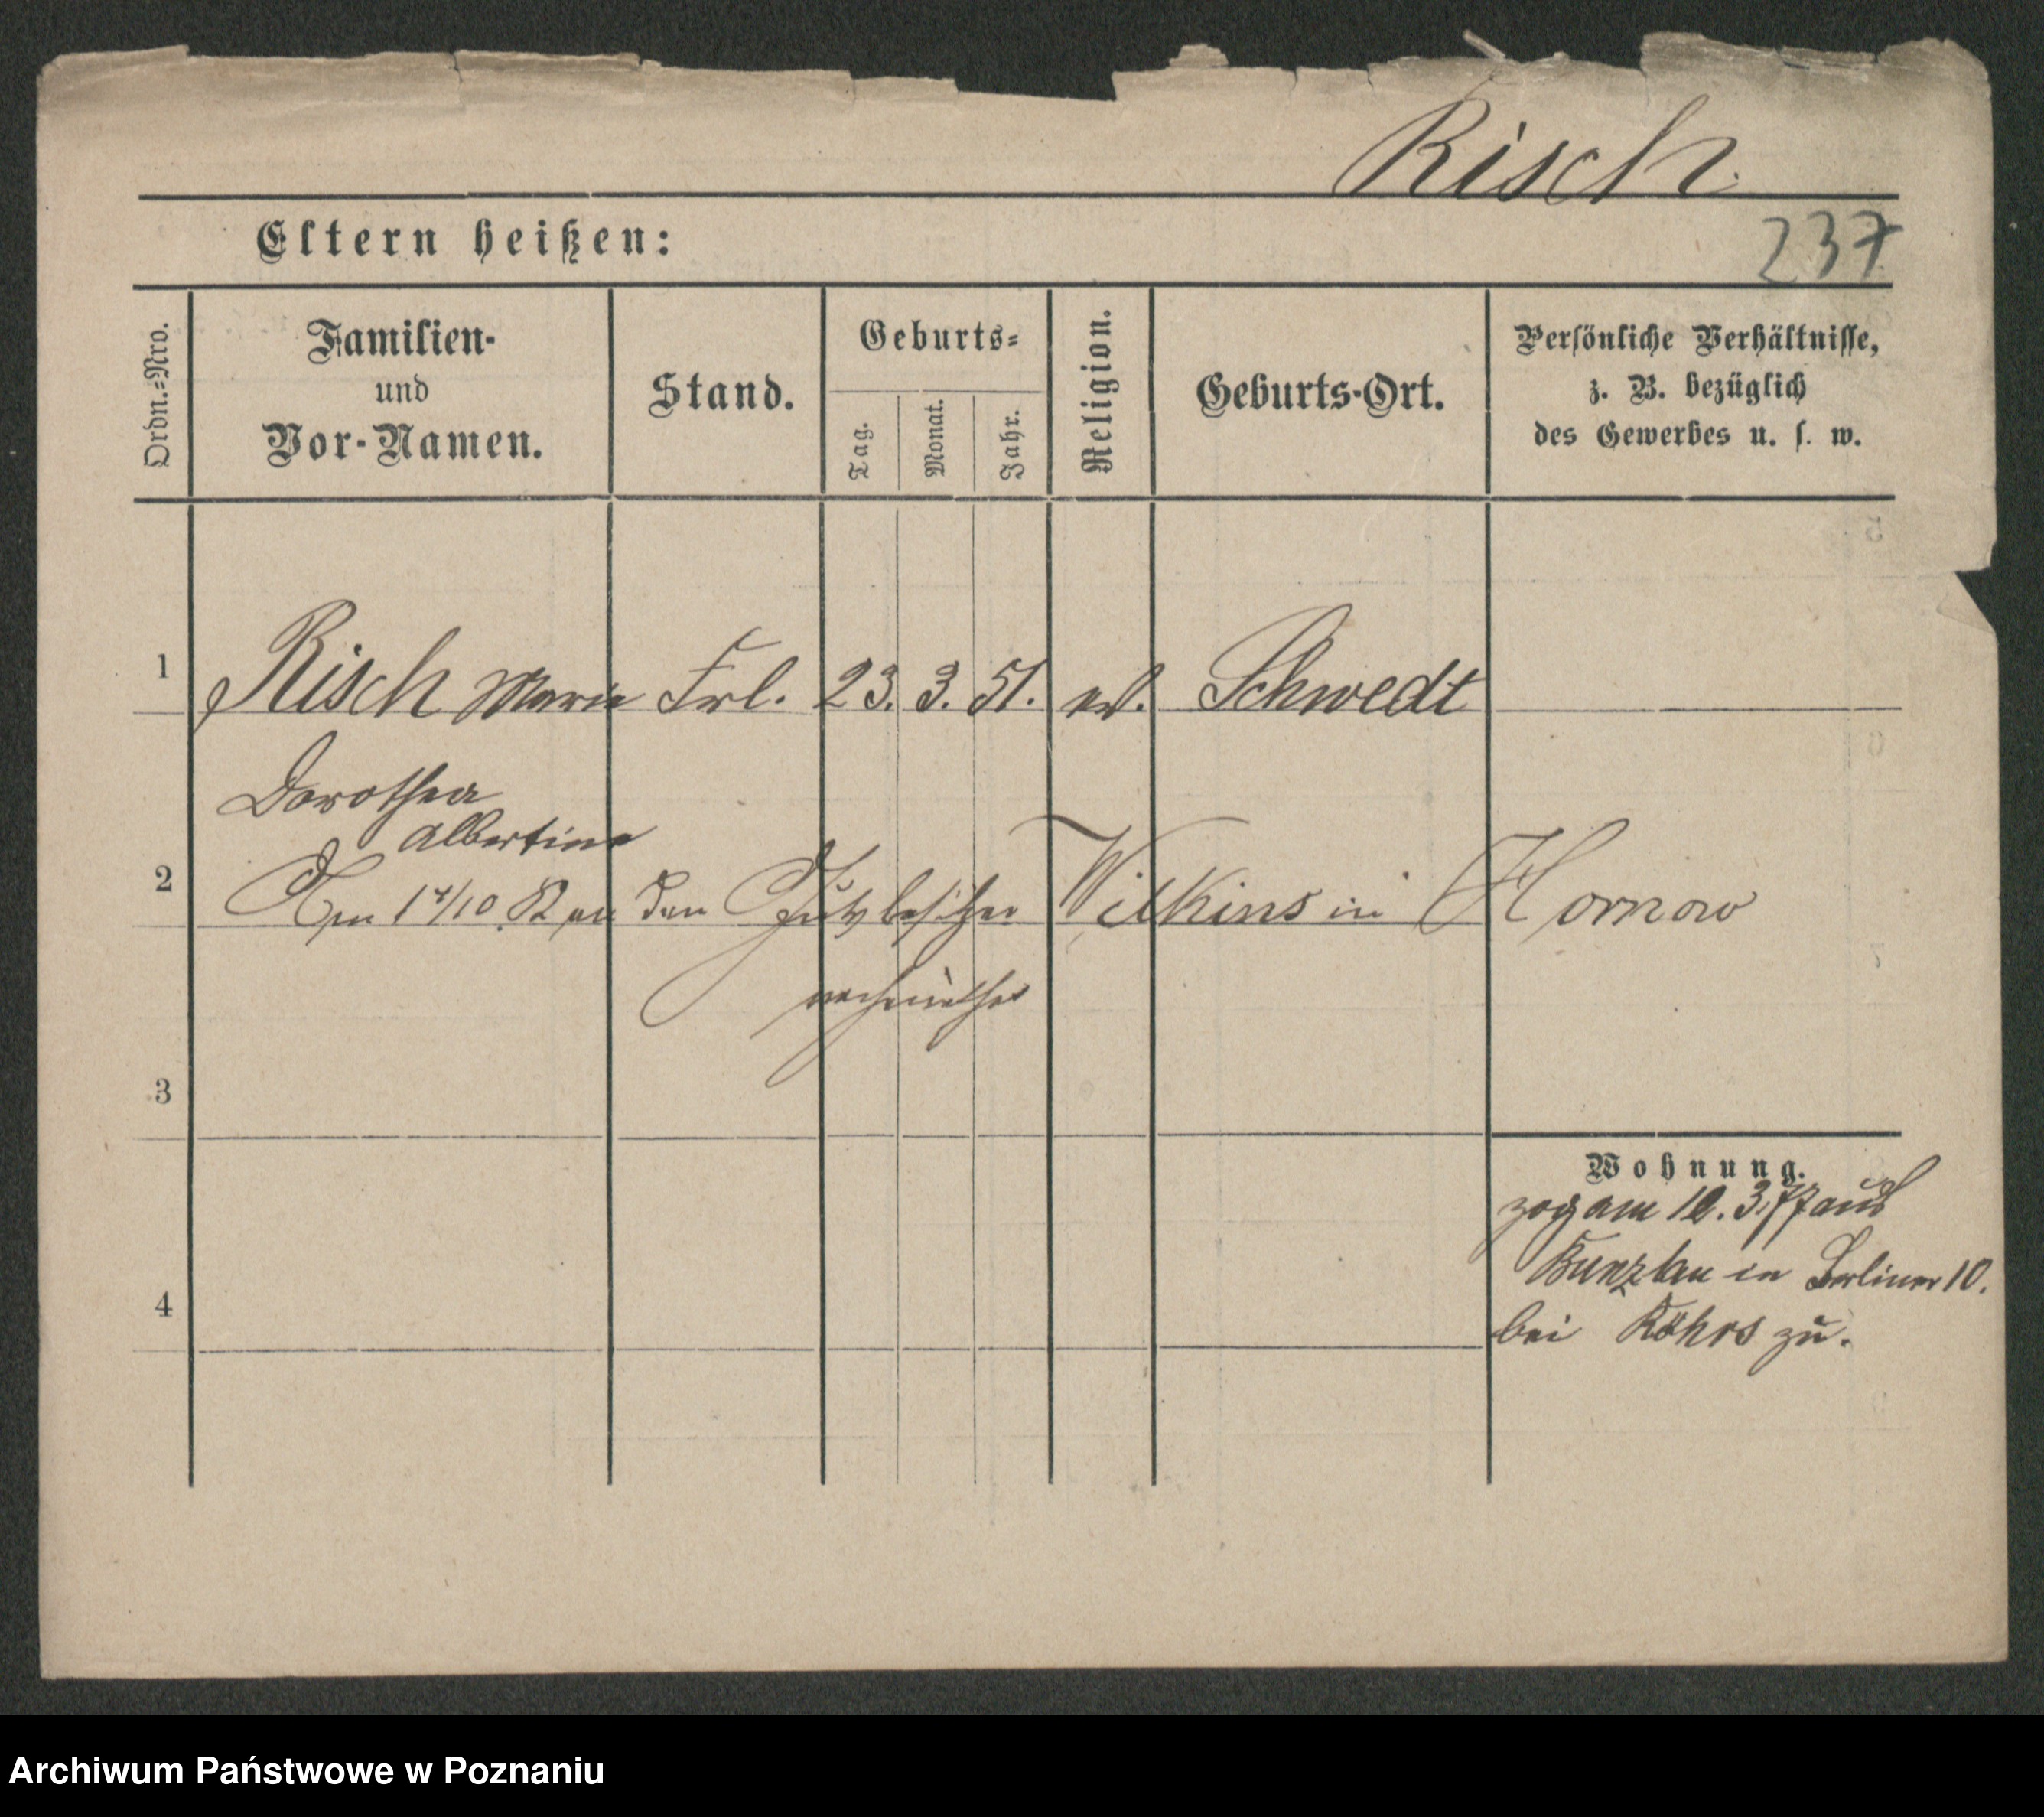 Risch.
Eltern heißen:
237
Ordn.=Nro.
Familien-
und
Vor-Namen.
Stand.
Geburts=
Tag.
Monat.
Jahr.
Religion.
Geburts-Ort.
Persönliche Verhältnisse,
z. B. bezüglich
des Gewerbes u. s. w.
1 Risch Marie Frl. 23. 3. 51. ev. Schwedt
Dorothea
Albertine
2 Am /10 an den Gutsbesitzer Wilkins in Hornow
verheirathet
3
Wohnung.
zog am 12. 3. 77 aus
Bunzlau in Berliner 10.
4
bei Röhrs zu.
Archiwum Państwowe w Poznaniu